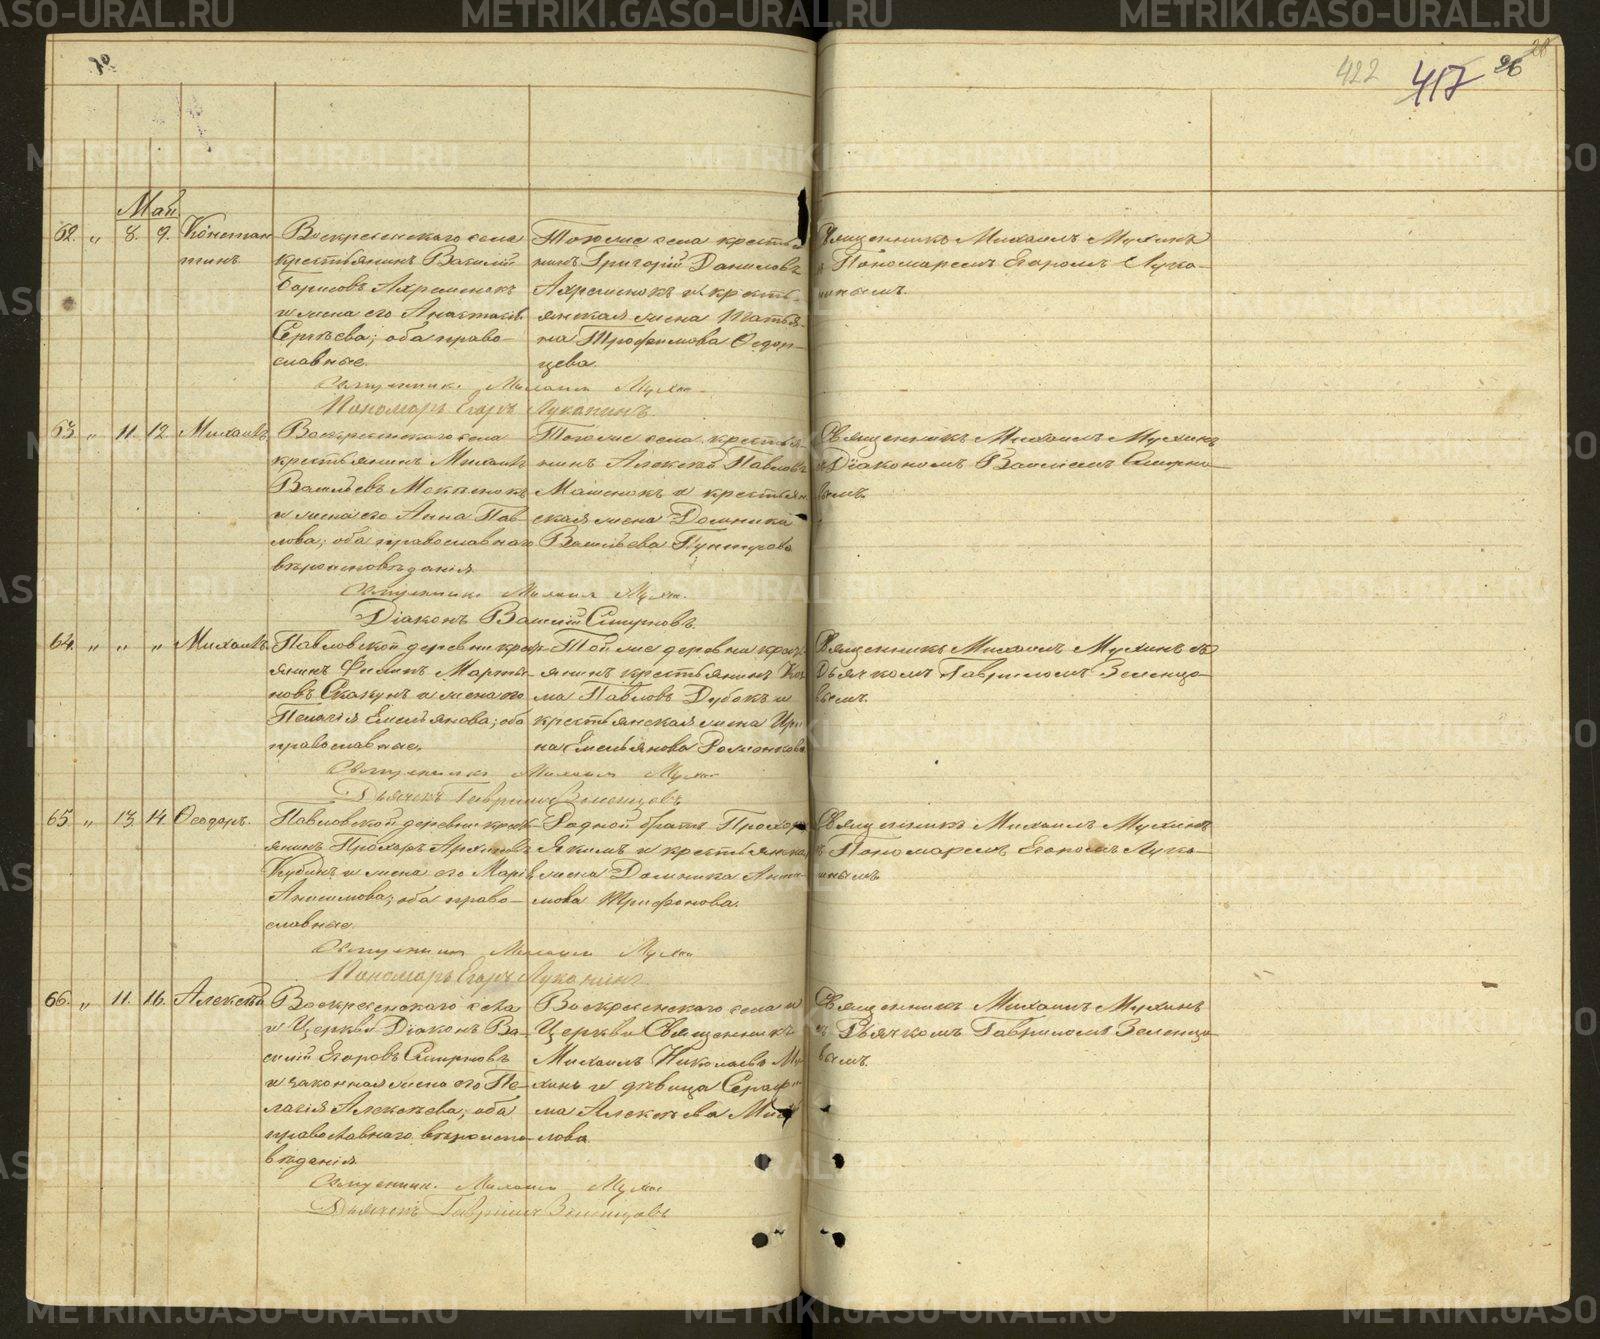 422 417 26 28
Май
62. „ 8. 9. Констан
тинъ
Воскресенскаго села
крестьянинъ Василій
Борисовъ Ахременокъ
и жена его Анастасія
Сергѣева; оба право-
славные.
Тогоже села крестья
нинъ Григорій Даниловъ
Ахременокъ и кресть-
янская жена Татья-
на Трофимова Федор-
цева.
Священникъ Михаилъ Мухинъ
Пономарь Егоръ Луканинъ
Священникъ Михаилъ Мухинъ
Пономаремъ Егоромъ Лука-
нинымъ.
63. „ 11. 12. Михаилъ
Воскресенскаго села
крестьянинъ Михаилъ
Васильевъ
и жена его Анна Пав-
лова; оба православнаго
вѣроисповѣданія.
Тогоже села крестья
нинъ Алексѣй Павловъ
и крестьян
ская жена Домника
Васильева
Священникъ Михаилъ Мухинъ
Діаконъ Василій Смирновъ.
Священникъ Михаилъ Мухинъ
Діакономъ Василіемъ Смирно-
вымъ.
64. „ „ „ Михаилъ.
Павловской деревни крест-
янинъ Филипъ Марты-
новъ Скакунъ и жена его
Пелагія Емельянова; оба
православные.
Той же деревни крест-
янинъ крестьянинъ Коз
ма Павловъ Дубокъ и
крестьянская жена Ири
на Емельянова
Священникъ Михаилъ Мухинъ
Дьячекъ Гавріилъ Зеленцовъ
Священникъ Михаилъ Мухинъ съ
Дьячкомъ Гавріиломъ Зеленцо-
вымъ.
65. „ 13. 14. Ѳеодоръ.
Павловской деревни крест-
янинъ Прохоръ Архиповъ
Кубинъ и жена его Марія
Анисимова; оба право-
славные.
Родной братъ Прохора
Якимъ и крестьянка
жена Домника
Трифонова.
Священникъ Михаилъ Мухинъ
Пономарь Егоръ Луканинъ
Священникъ Михаилъ Мухинъ
Пономаремъ Егоромъ Лука-
нинымъ.
66. „ 11. 16. Алексѣй
Воскресенскаго села
и Церкви Діаконъ Ва-
силій Егоровъ Смирновъ
и законная жена его Пе-
лагія Алексѣева; оба
православнаго вѣроиспо-
вѣданія.
Воскресенскаго села и
Церкви Священникъ
Михаилъ Николаевъ Му
хинъ и дѣвица Серафи
ма Алексѣева
лова
Священникъ Михаилъ Мухинъ
Дьячекъ Гавріилъ Зеленцовъ
Священникъ Михаилъ Мухинъ
съ Дьячкомъ Гавріиломъ Зеленцо-
вымъ.
METRIKI.GASO-URAL.RU